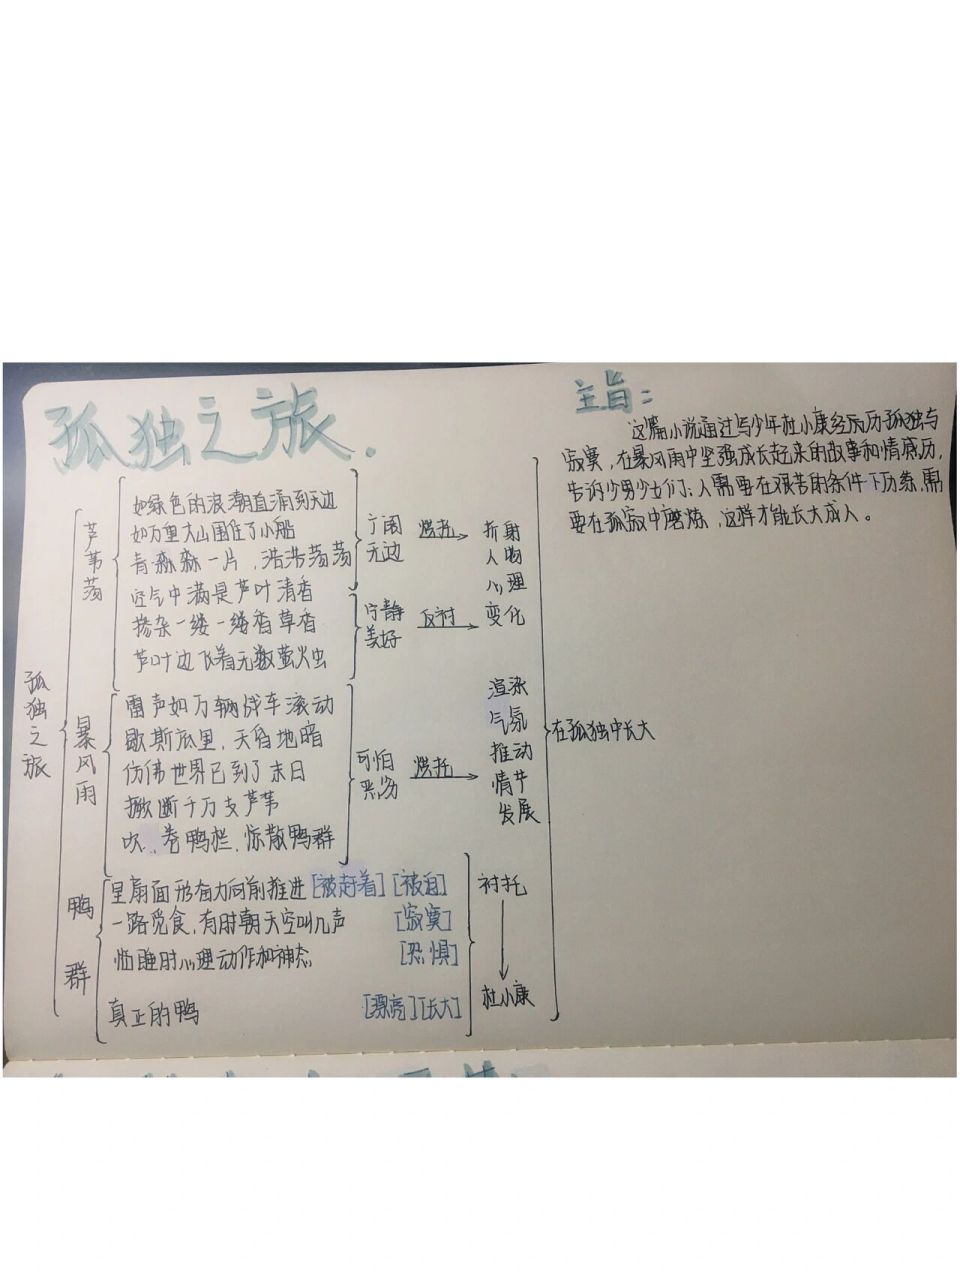 孤独之旅.
主旨:
这篇小说通过写少年杜小康经历孤独与
寂寞,在暴风雨中坚强成长起来的故事和情感历,
告诉少男少女们:人需要在艰苦的条件下历练,需
要在孤寂中磨炼,这样才能长大成人。
孤独之旅
芦苇荡
如绿色的浪潮直涌到天边
如万重大山围住了小船
青森森一片,浩浩荡荡
宁阔
无边
烘托
空气中满是芦叶清香
掺杂一缕一缕香草香
芦叶边飞着无数萤火虫
宁静
美好
反衬
折射
人物
心理
变化
暴风雨
雷声如万辆战车滚动
歇斯底里,天昏地暗
仿佛世界已到了末日
撅断千万支芦苇
吹、卷鸭栏,惊散鸭群
可怕
烘托
渲染
气氛
推动
情节
发展
鸭群
呈扇面形奋力向前推进[被赶着][被迫]
一路觅食,有时朝天空叫几声 [寂寞]
临睡时心理动作和神态 [恐惧]
真正的鸭 [漂亮][长大]
衬托
杜小康
在孤独中长大